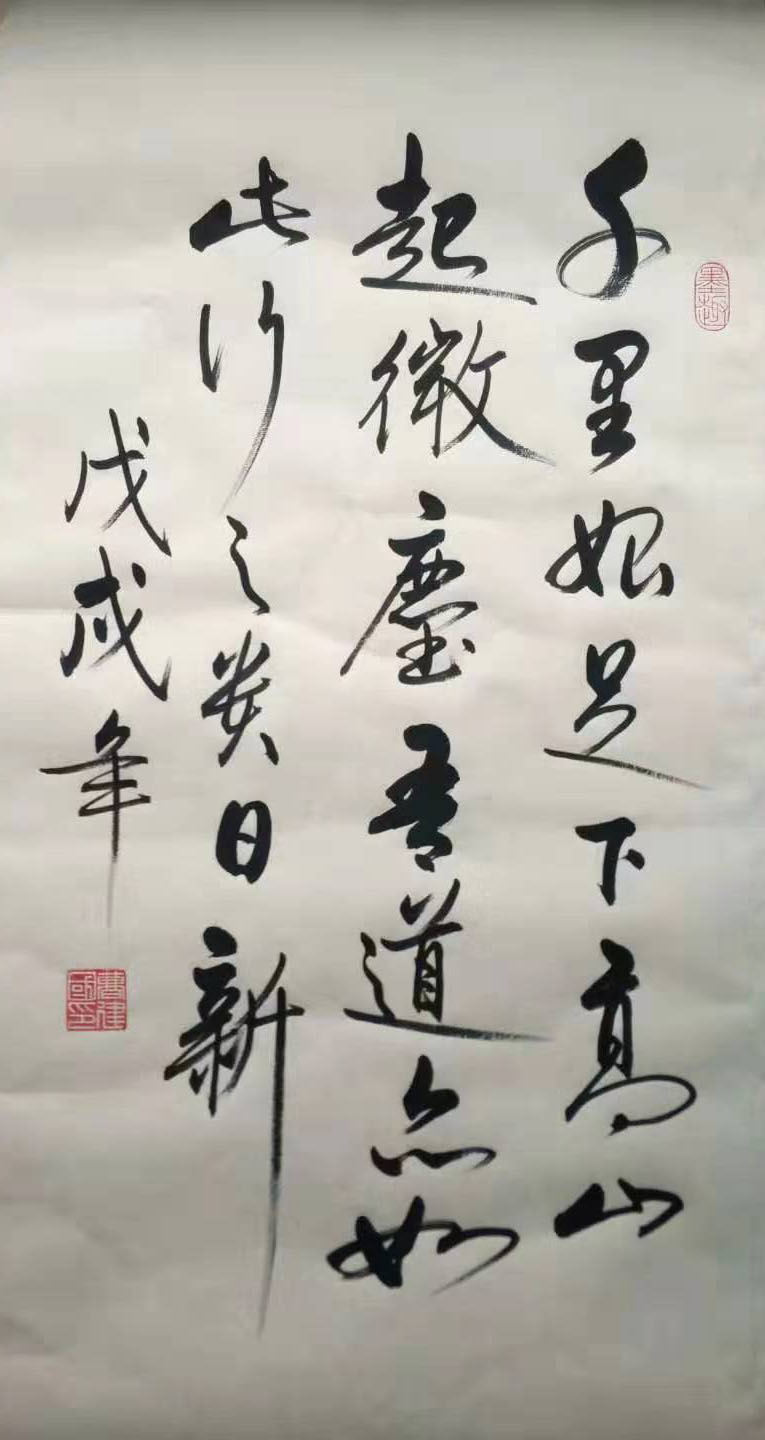 千里始足下高山
起微塵吾道亦如
此行之貴日新
戊戌年
曹建國印